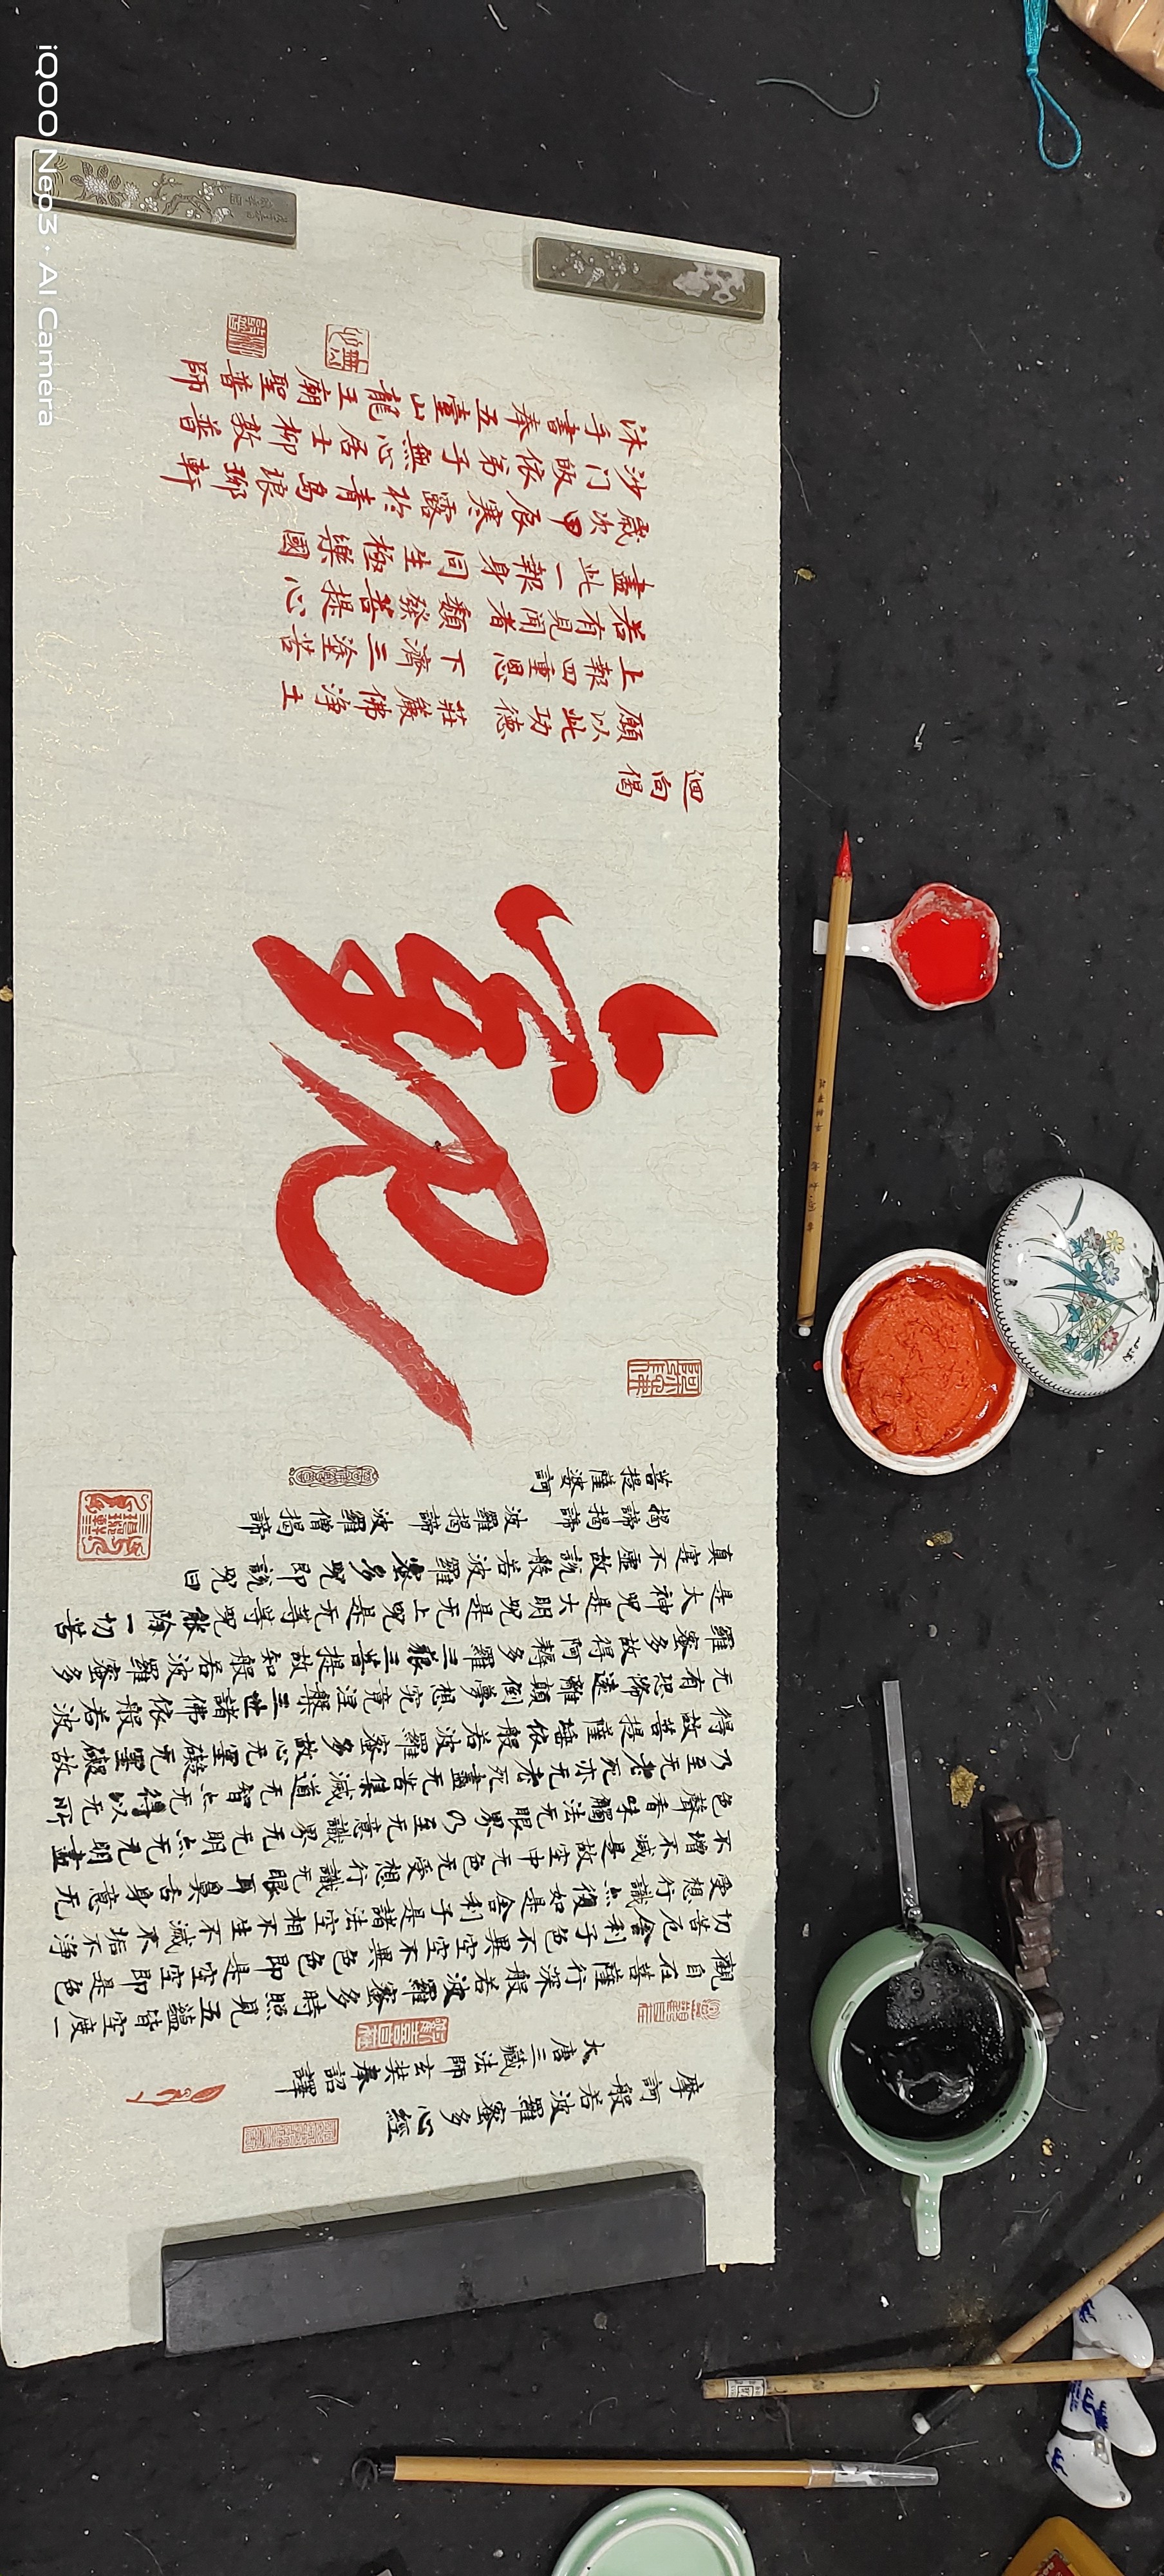 摩訶般若波羅蜜多心經
大唐三藏法師玄奘奉詔譯
觀自在菩薩行深般若波羅蜜多時照見五蘊皆空度一
切苦厄舍利子色不異空空不異色色即是空空即是色
受想行識点復如是舍利子是諸法空相不生不滅不垢不淨
不增不減是故空中无色无受想行識无眼耳鼻舌身意无
色聲香味觸法无眼界乃至无意識界无无明点无无明盡
乃至无老死亦无老死盡无苦集滅道无智点无得以无所
得故菩提薩埵依般若波羅蜜多故心无罣礙无罣礙故
无有恐怖遠離顛倒夢想究竟涅槃三世諸佛依般若波
羅蜜多故得阿耨多羅三藐三菩提故知般若波羅蜜多
是大神咒是大明咒是无上咒是无等等咒能除一切苦
真實不虛故說般若波羅蜜多咒即說咒曰
揭諦揭諦 波羅揭諦 波羅僧揭諦
菩提薩婆訶
迴向偈
願以此功德 莊嚴佛淨土
上報四重恩 下濟三塗苦
若有見聞者 類發菩提心
盡此一報身 同生極樂國
歲次甲辰寒露於青島琅琊軒
沙门皈依弟子無心居士柳敦普
沐手書奉五臺山龍王廟聖普師
iQOO Neo3 · AI Camera